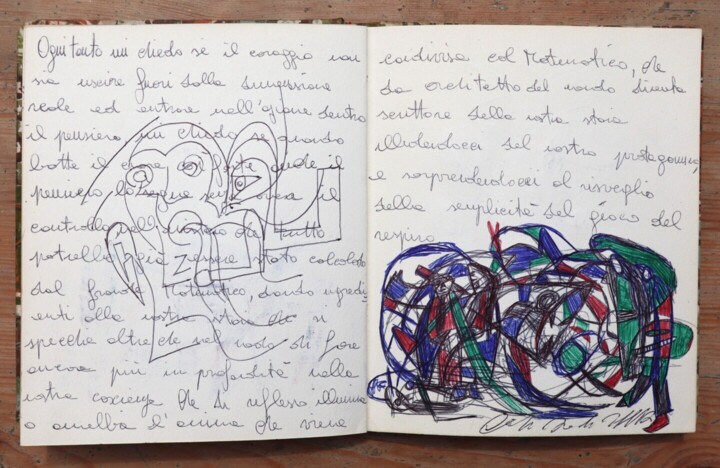 Ogni tanto mi chiedo se il coraggio non
sia uscire fuori dalla dimensione
reale ed entrare nell'azione dentro
il pensiero mi chiedo se quando
batte il cuore così forte anche il
pensiero lo segue senza il
controllo dell'
potrebbe già essere stato calcolato
dal grande Matematico, dando ingredi-
enti alla nostra storia che si
specchia oltre che nel modo di fare
ancora più in profondità nella
nostra coscienza che di riflesso illumina
o annebbia l'anima che viene
condivisa col Matematico, che
da architetto del mondo diventa
scrittore della nostra storia
illudendoci del nostro protagonismo,
e sorprendendoci al risveglio
della semplicità del gioco del
respiro